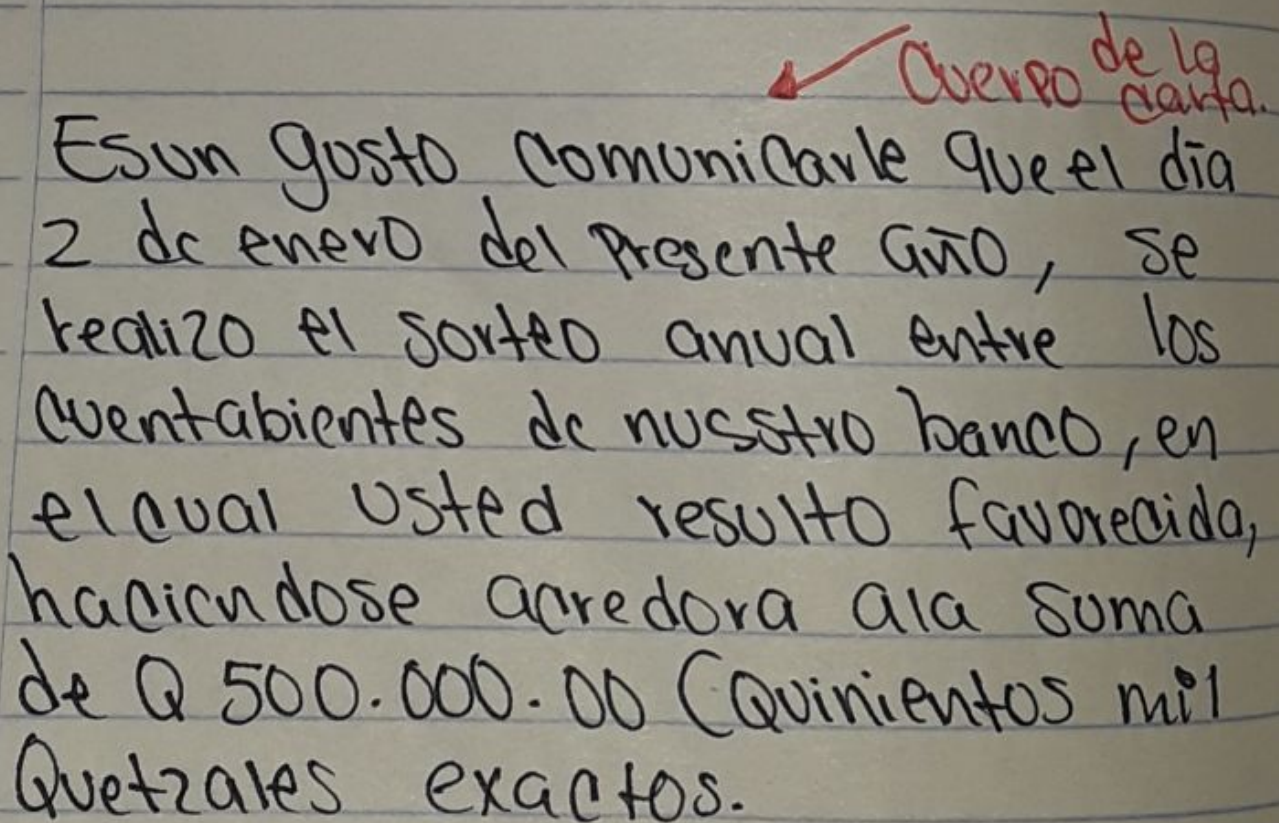 Cuerpo de la carta.
Es un gosto comunicarle que el día
2 de enero del presente año, se
realizo el sorteo anual entre los
cuentabientes de nusstro banco, en
el cual usted resulto favorecida,
haciendose acredora ala suma
de Q 500.000.00 (Quinientos mil
Quetzales exactos.